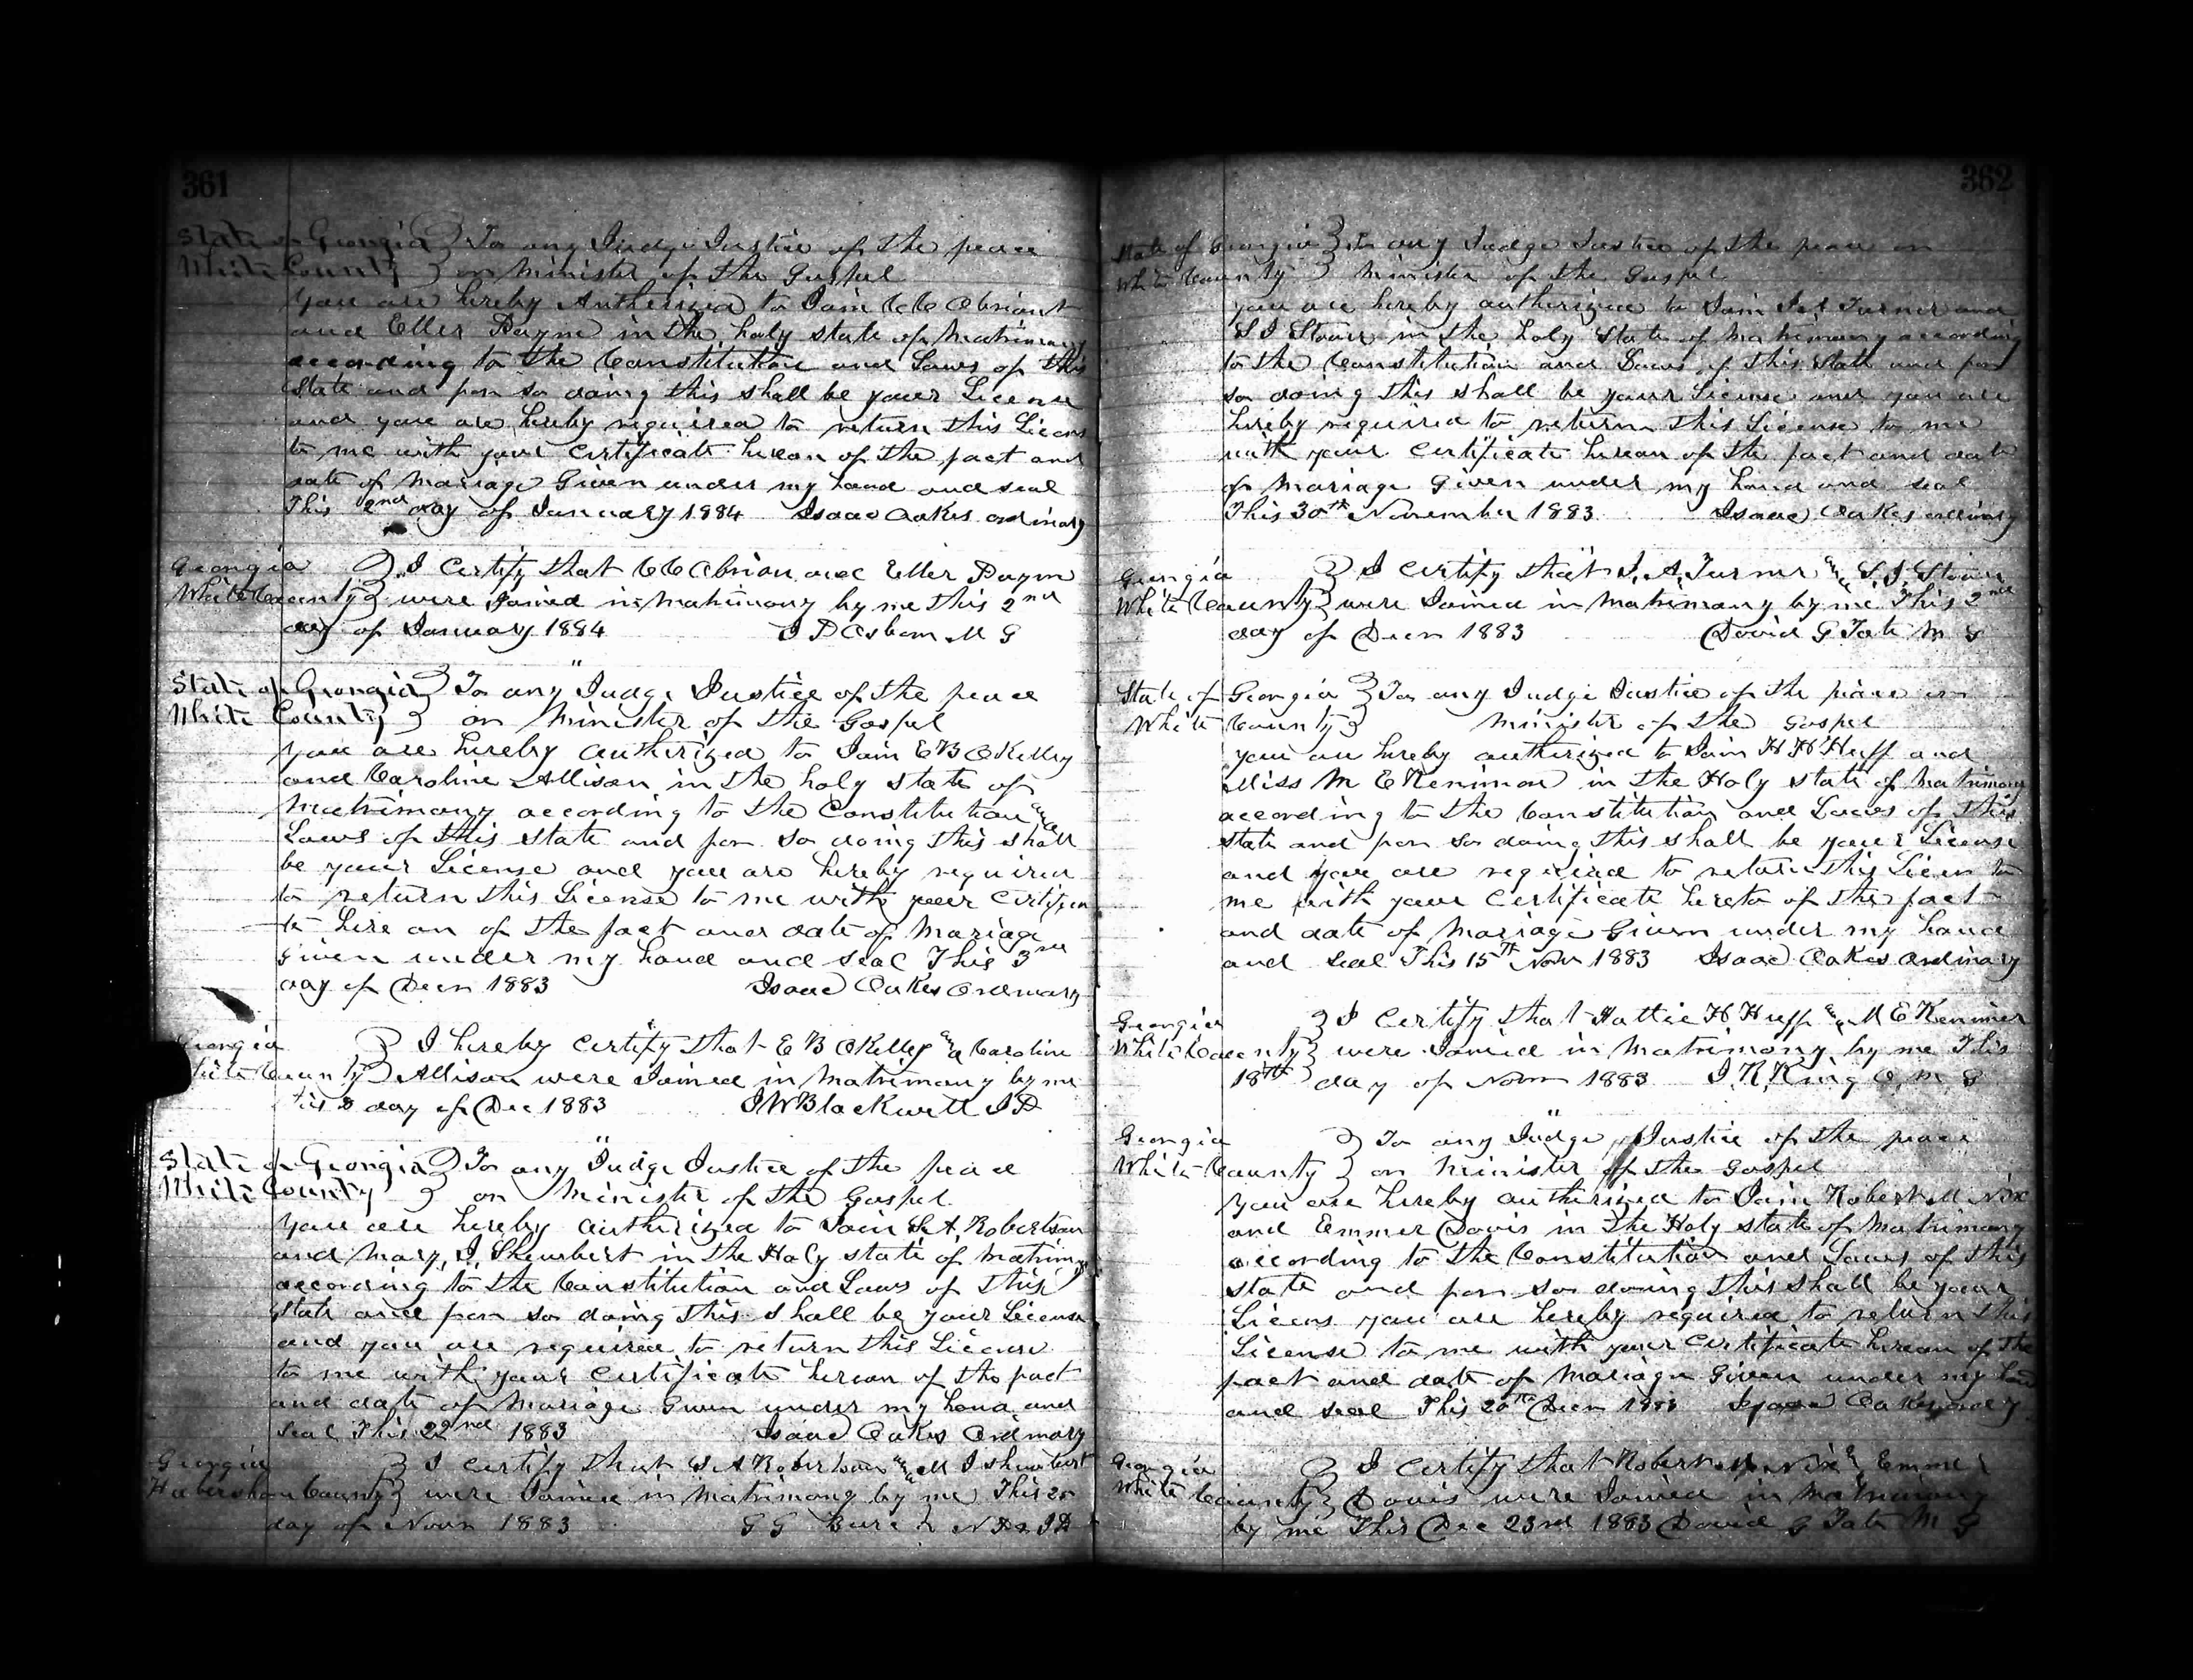 361
State of Georgia } To any Judge Justice of the peace
White County } or Minister of the Gospel
You are hereby Autherized to Join C C Obriant
and Eller Payne in the holy state of Matrimony
according to the Constitution and Laws of this
State and for so doing this shall be your License
and you are hereby required to return this Licens
to me with your Certificate hereon of the fact and
date of Mariage Given under my hand and seal
This 2nd day of January 1884 Isaac Oakes ordinary
Georgia } I Certify that C C Obrian and Eller Payne
White County } were Joined in Matrimony by me this 2nd
day of January 1884 J P Osborn M G
State of Georgia } To any Judge Justice of the peace
White County } or Minister of the Gospel
You are hereby autherized to Join E B OKelley
and Caroline Allison in the holy state of
Matrimony according to the Constitution and
Laws of this state and for so doing this shall
be your License and you are hereby required
to return this License to me with your Certifica
te here on of the fact and date of Mariage
Given under my hand and seal This 3rd
day of Decr 1883 Isaac Oakes Ordinary
Georgia } I hereby Certify that E B OKelley and Caroline
White County } Allison were Joined in Matrimony by me
this day of Dec 1883 J W Blackwell J P
State of Georgia } To any Judge Justice of the peace
White County } or Minister of the Gospel
You are hereby autherized to Join S. A. Robertson
and Mary, J, Shumbert in the Holy state of Matrimy
according to the Constitution and Laws of this
State and for so doing this shall be your License
and you are required to return this License
to me with your Certificate hereon of the fact
and date of Mariage Given under my hand and
Seal This 22nd 1883 Isaac Oakes Ordinary
Georgia } I Certify that S A Robertson and M J Shumbert
Habersham County } were Joined in Matrimony by me This 25
day of Novr 1883 G G Burch
362
State of Georgia } To any Judge Justice of the peace or
White County } Minister of the Gospel
you are hereby autherized to Join J. A. Turner and
S J Stover in the holy State of Matrimony according
to the Constitution and Laws of this State and for
so doing this shall be your License and you are
hereby required to return this License to me
with your Certificate hereon of the fact and date
of Mariage Given under my hand and seal
This 30th November 1883 Isaac Oakes ordinary
Georgia } I Certify that J. A. Turner and S. J. Stover
White County } were Joined in Matrimony by me This 2nd
day of Decr 1883 David G Tate M G
State of Georgia } To any Judge Justice of the peace or
White County } Minister of the Gospel
you are hereby autherized to Join H H Huff and
Miss M E Kenimer in the Holy state of Matrimony
according to the Constitution and Laws of this
state and for so doing this shall be your License
and you are required to return this Licen to
me with your Certificate hereto of the fact
and date of Mariage Given under my hand
and seal This 15th Novr 1883 Isaac Oakes Ordinary
Georgia } I Certify that Hattie H Huff and M E Kenimer
White County } were Joined in Matrimony by me This
18th day of Novr 1883 J R King O. M G
Georgia } To any Judge Justice of the peace
White County } or Minister of the Gospel
You are hereby autherized to Join Robert M Nix
and Emmer Davis in the Holy state of Matrimony
according to the Constitution and Laws of this
state and for so doing this shall be your
Licens you are hereby required to return this
License to me with your Certificate hereon of the
fact and date of Mariage Given under my hand
and seal This 20th Decr 1883 Isaac Oakes
Georgia } I Certify that Robert M Nix & Emmer
White County } Davis were Joined in Matrimony
by me This Dec 23rd 1883 David G Tate M G